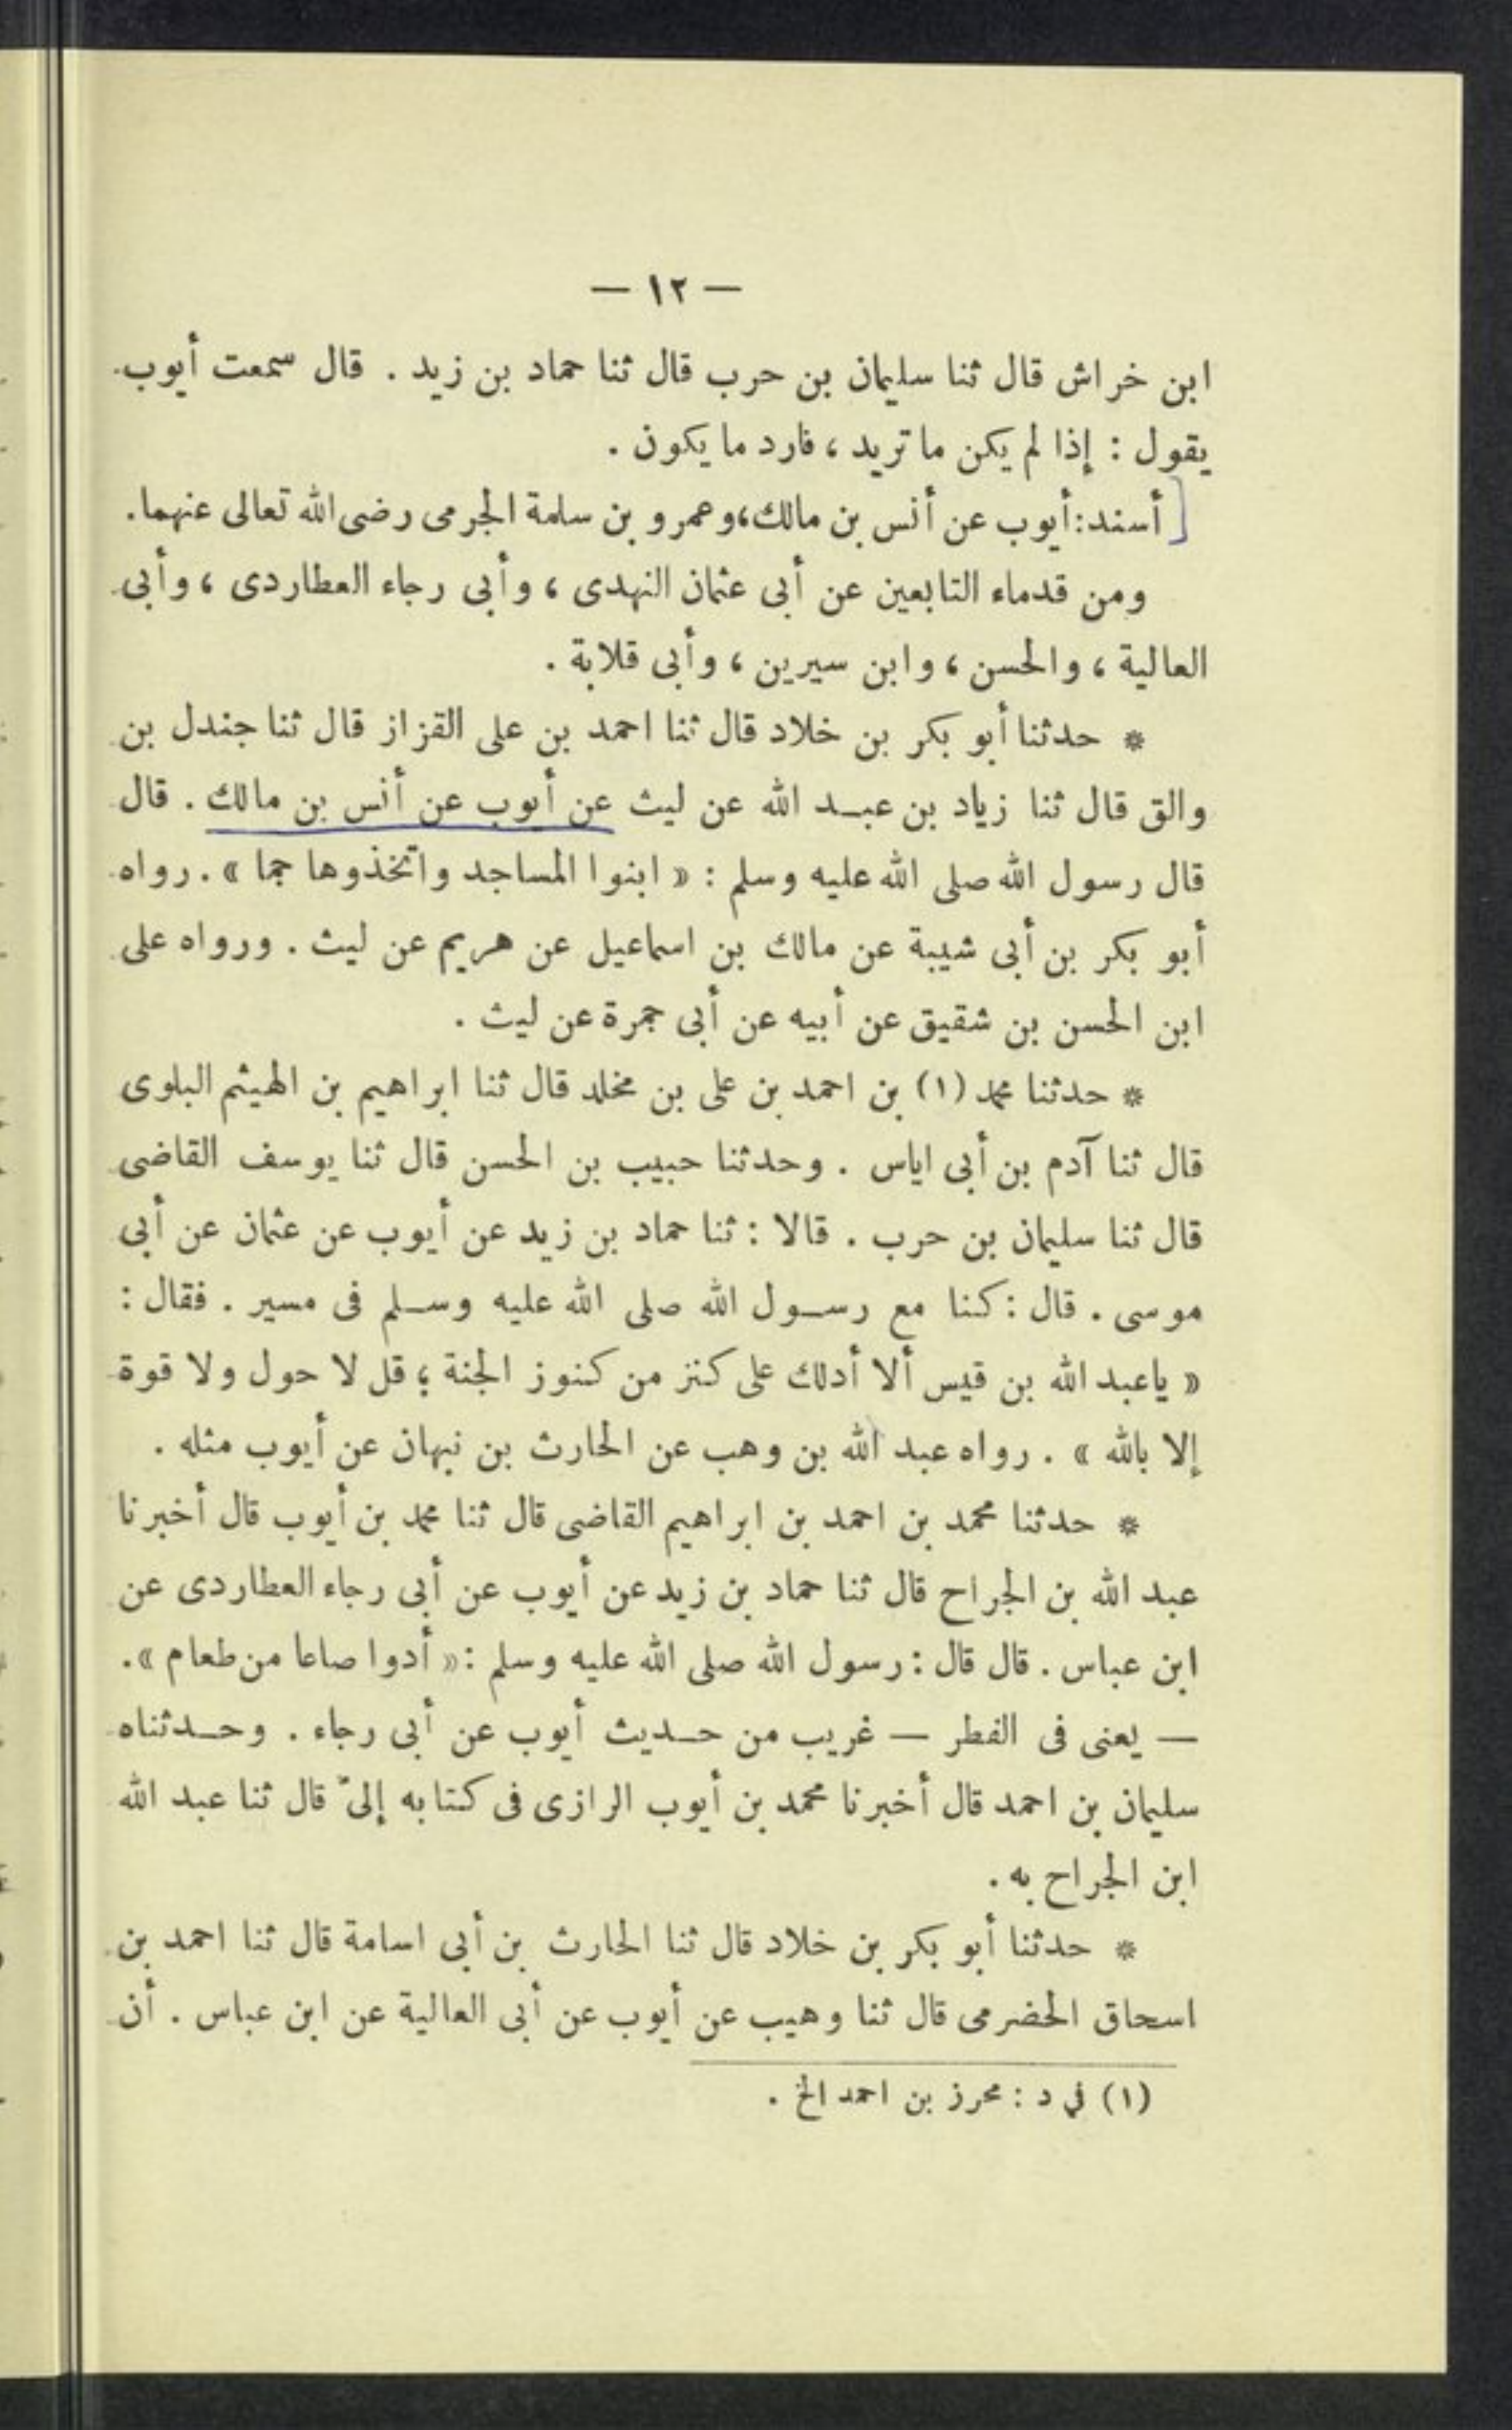 — ١٢ —
ابن خراش قال ثنا سليمان بن حرب قال ثنا حماد بن زيد . قال سمعت أيوب
يقول : إذا لم يكن ما تريد ، فارد ما يكون .
أسند : أيوب عن أنس بن مالك ، وعمرو بن سلمة الجرمى رضى الله تعالى عنهما .
ومن قدماء التابعين عن أبى عثمان النهدى ، وأبى رجاء العطاردى ، وأبى
العالية ، والحسن ، وابن سيرين ، وأبى قلابة .
* حدثنا أبو بكر بن خلاد قال ثنا احمد بن على القزاز قال ثنا جندل بن
والق قال ثنا زياد بن عبد الله عن ليث عن أيوب عن أنس بن مالك . قال
قال رسول الله صلى الله عليه وسلم : « ابنوا المساجد واتخذوها جما » . رواه
أبو بكر بن أبى شيبة عن مالك بن اسماعيل عن هريم عن ليث . ورواه على
ابن الحسن بن شقيق عن أبيه عن أبى حمزة عن ليث .
* حدثنا محمد (١) بن احمد بن على بن مخلد قال ثنا ابراهيم بن الهيثم البلوى
قال ثنا آدم بن أبى اياس . وحدثنا حبيب بن الحسن قال ثنا يوسف القاضى
قال ثنا سليمان بن حرب . قالا : ثنا حماد بن زيد عن أيوب عن عثمان عن أبى
موسى . قال : كنا مع رسول الله صلى الله عليه وسلم فى مسير . فقال :
« ياعبد الله بن قيس ألا أدلك على كنز من كنوز الجنة ؛ قل لا حول ولا قوة
إلا بالله » . رواه عبد الله بن وهب عن الحارث بن نبهان عن أيوب مثله .
* حدثنا محمد بن احمد بن ابراهيم القاضى قال ثنا محمد بن أيوب قال أخبرنا
عبد الله بن الجراح قال ثنا حماد بن زيد عن أيوب عن أبى رجاء العطاردى عن
ابن عباس . قال قال : رسول الله صلى الله عليه وسلم : « أدوا صاعا من طعام » .
— يعنى فى الفطر — غريب من حديث أيوب عن أبى رجاء . وحدثناه
سليمان بن احمد قال أخبرنا محمد بن أيوب الرازى فى كتابه إلىّ قال ثنا عبد الله
ابن الجراح به .
* حدثنا أبو بكر بن خلاد قال ثنا الحارث بن أبى اسامة قال ثنا احمد بن
اسحاق الحضرمى قال ثنا وهيب عن أيوب عن أبى العالية عن ابن عباس . أن
(١) في د : محرز بن احمد الخ .